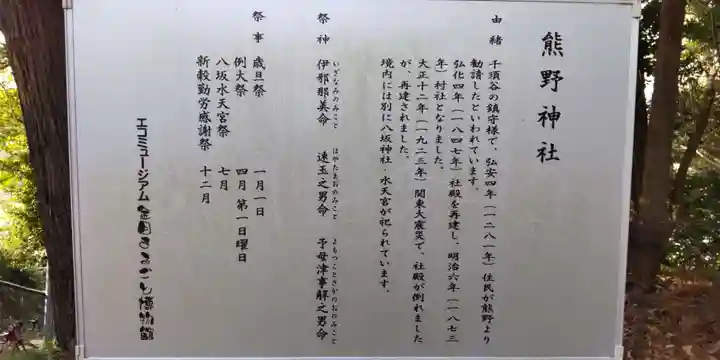 熊野神社
由緒 千須谷の鎮守様で、弘安四年(一二八一年)住民が熊野より
勧請したといわれています。
弘化四年(一八四七年)社殿を再建し、明治六年(一八七三
年)村社となりました。
大正十二年(一九二三年)関東大震災で、社殿が倒れました
が、再建されました。
境内には別に八坂神社・水天宮が祀られています。
祭神 伊邪那美命 速玉之男命 予母津事解之男命
いざなみのみこと はやたまおのみこと よもつことさかのおのみこと
祭事 歳旦祭 一月一日
例大祭 四月 第一日曜日
八坂水天宮祭 七月
新穀勤労感謝祭 十二月
エコミュージアム 金目まるごと博物館